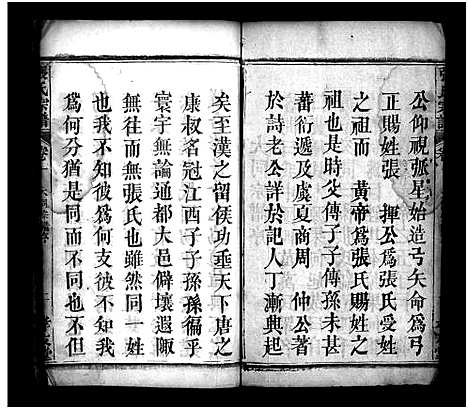 公仰視弧星始造弓矢命爲弓
正賜姓張　揮公爲張氏受姓
之祖而　黄帝爲張氏賜姓之
祖也是時父傳子子傳孫未甚
蕃衍遞及虞夏商周　仲公著
於詩老公詳於記人丁漸興起
矣至漢之留侯功垂天下唐之
康叔名冠江西子子孫孫徧乎
寰宇無論通都大邑僻壤遐陬
無往而無張氏也雖然同一姓
也我不知彼爲何支彼不知我
爲何分猶是同而不同也不但
氏宗譜